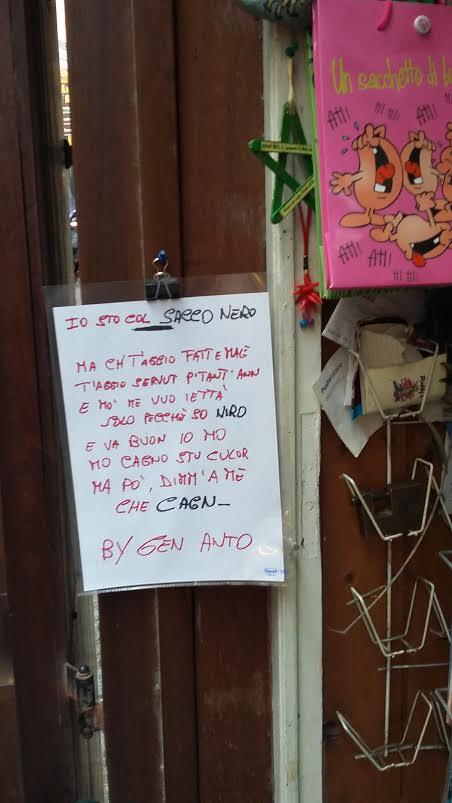 IO STO COL SACCO NERO
MA CH T'AGGIO FATT E MALE
T'AGGIO SERVUT P'TANT'ANN
E MO' ME VUO IETTÀ
SOLO PECCHÈ SO NIRO
E VA BUON IO MO
MO CAGNO STU CULOR
MA PO', DIMM'A ME
CHE CAGN_
BY GEN ANTO
Un sacchetto di
AHI!
HI HI!
AHI!
AHI!
AHI!
HI HI!